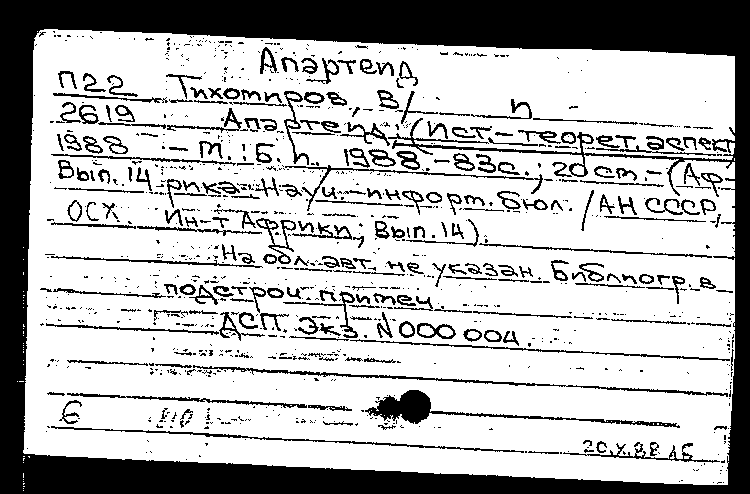 Апартеид
П22 Тихомиров, В/ п
2619 Апартеид: (Ист.-теорет. аспект)
1988 - М.: Б.и., 1988.-83с.; 20см.-(Аф-
Вып.14 рика: Науч.-информ. бюл. / АН СССР,
ОСХ. Ин-т Африки; Вып.14).
На обл. авт. не указан. Библиогр. в
подстроч. примеч.
ДСП. Экз. N000004.
6
20.X.88